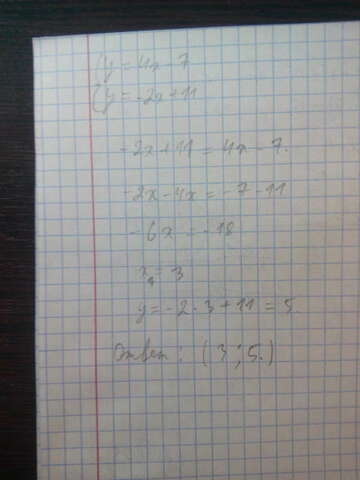 {y = 4x - 7
{y = -2x + 11
-2x + 11 = 4x - 7.
-2x - 4x = -7 - 11
-6x = -18
x = 3
y = -2 · 3 + 11 = 5.
Ответ: (3; 5.)